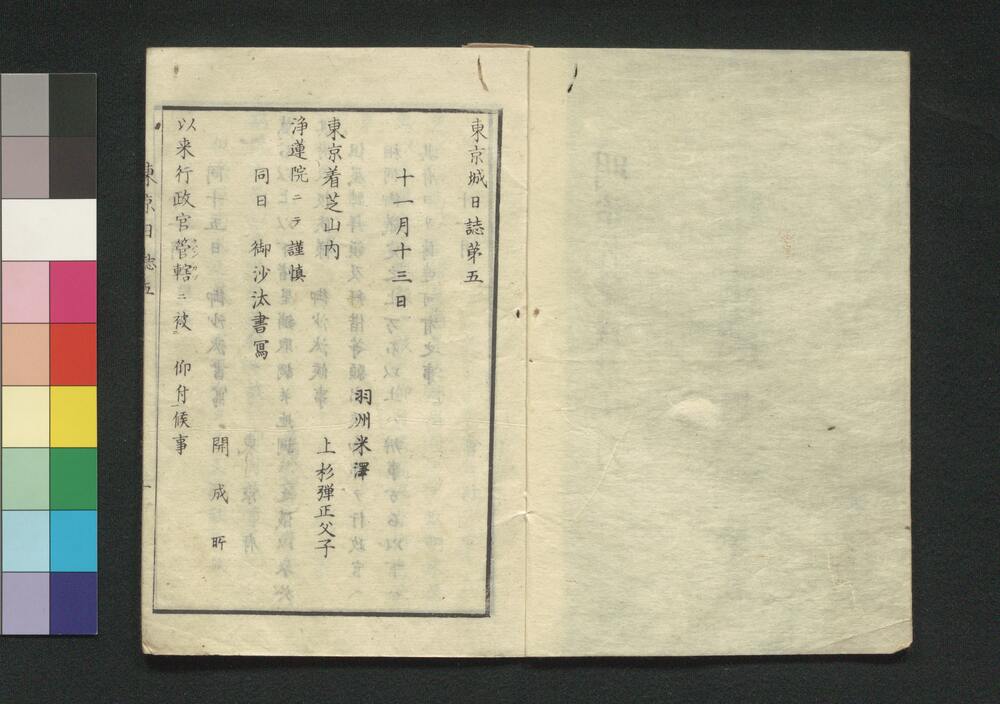 東京城日誌第五
十一月十三日
羽州米澤
上杉彈正父子
東京着芝山内
浄蓮院ニテ謹慎
同日　御沙汰書寫
開成所
以来行政官管轄ニ被　仰付候事
東京日誌五